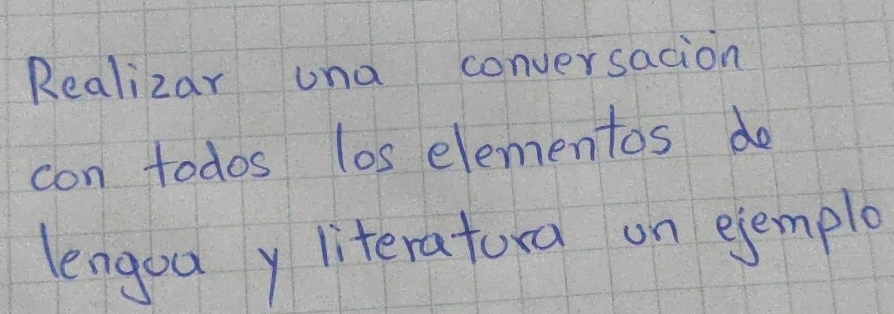 Realizar una conversación
con todos los elementos de
lengua y literatura un ejemplo